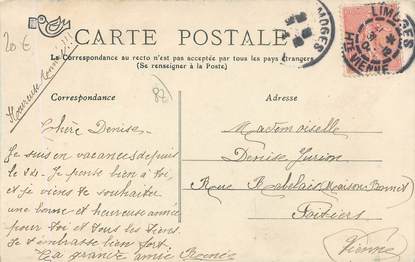 20 €
CARTE POSTALE
La Correspondance au recto n'est pas acceptée par tous les pays étrangers
(Se renseigner à la Poste)
LIMOGES
LIMOGES
Hte VIENNE
Heureuse Année!!!
Correspondance
87
Adresse
Chère Denise
Je suis en vacances depuis
le 24. Je pense bien à toi,
et je viens te souhaiter
une bonne et heureuse année
pour toi et tous les tiens
Je t'embrasse bien fort.
Ta grande amie Renée
Mademoiselle
Denise Jurion
Rue Rabelais (Maison Bonnet)
Poitiers
(Vienne)